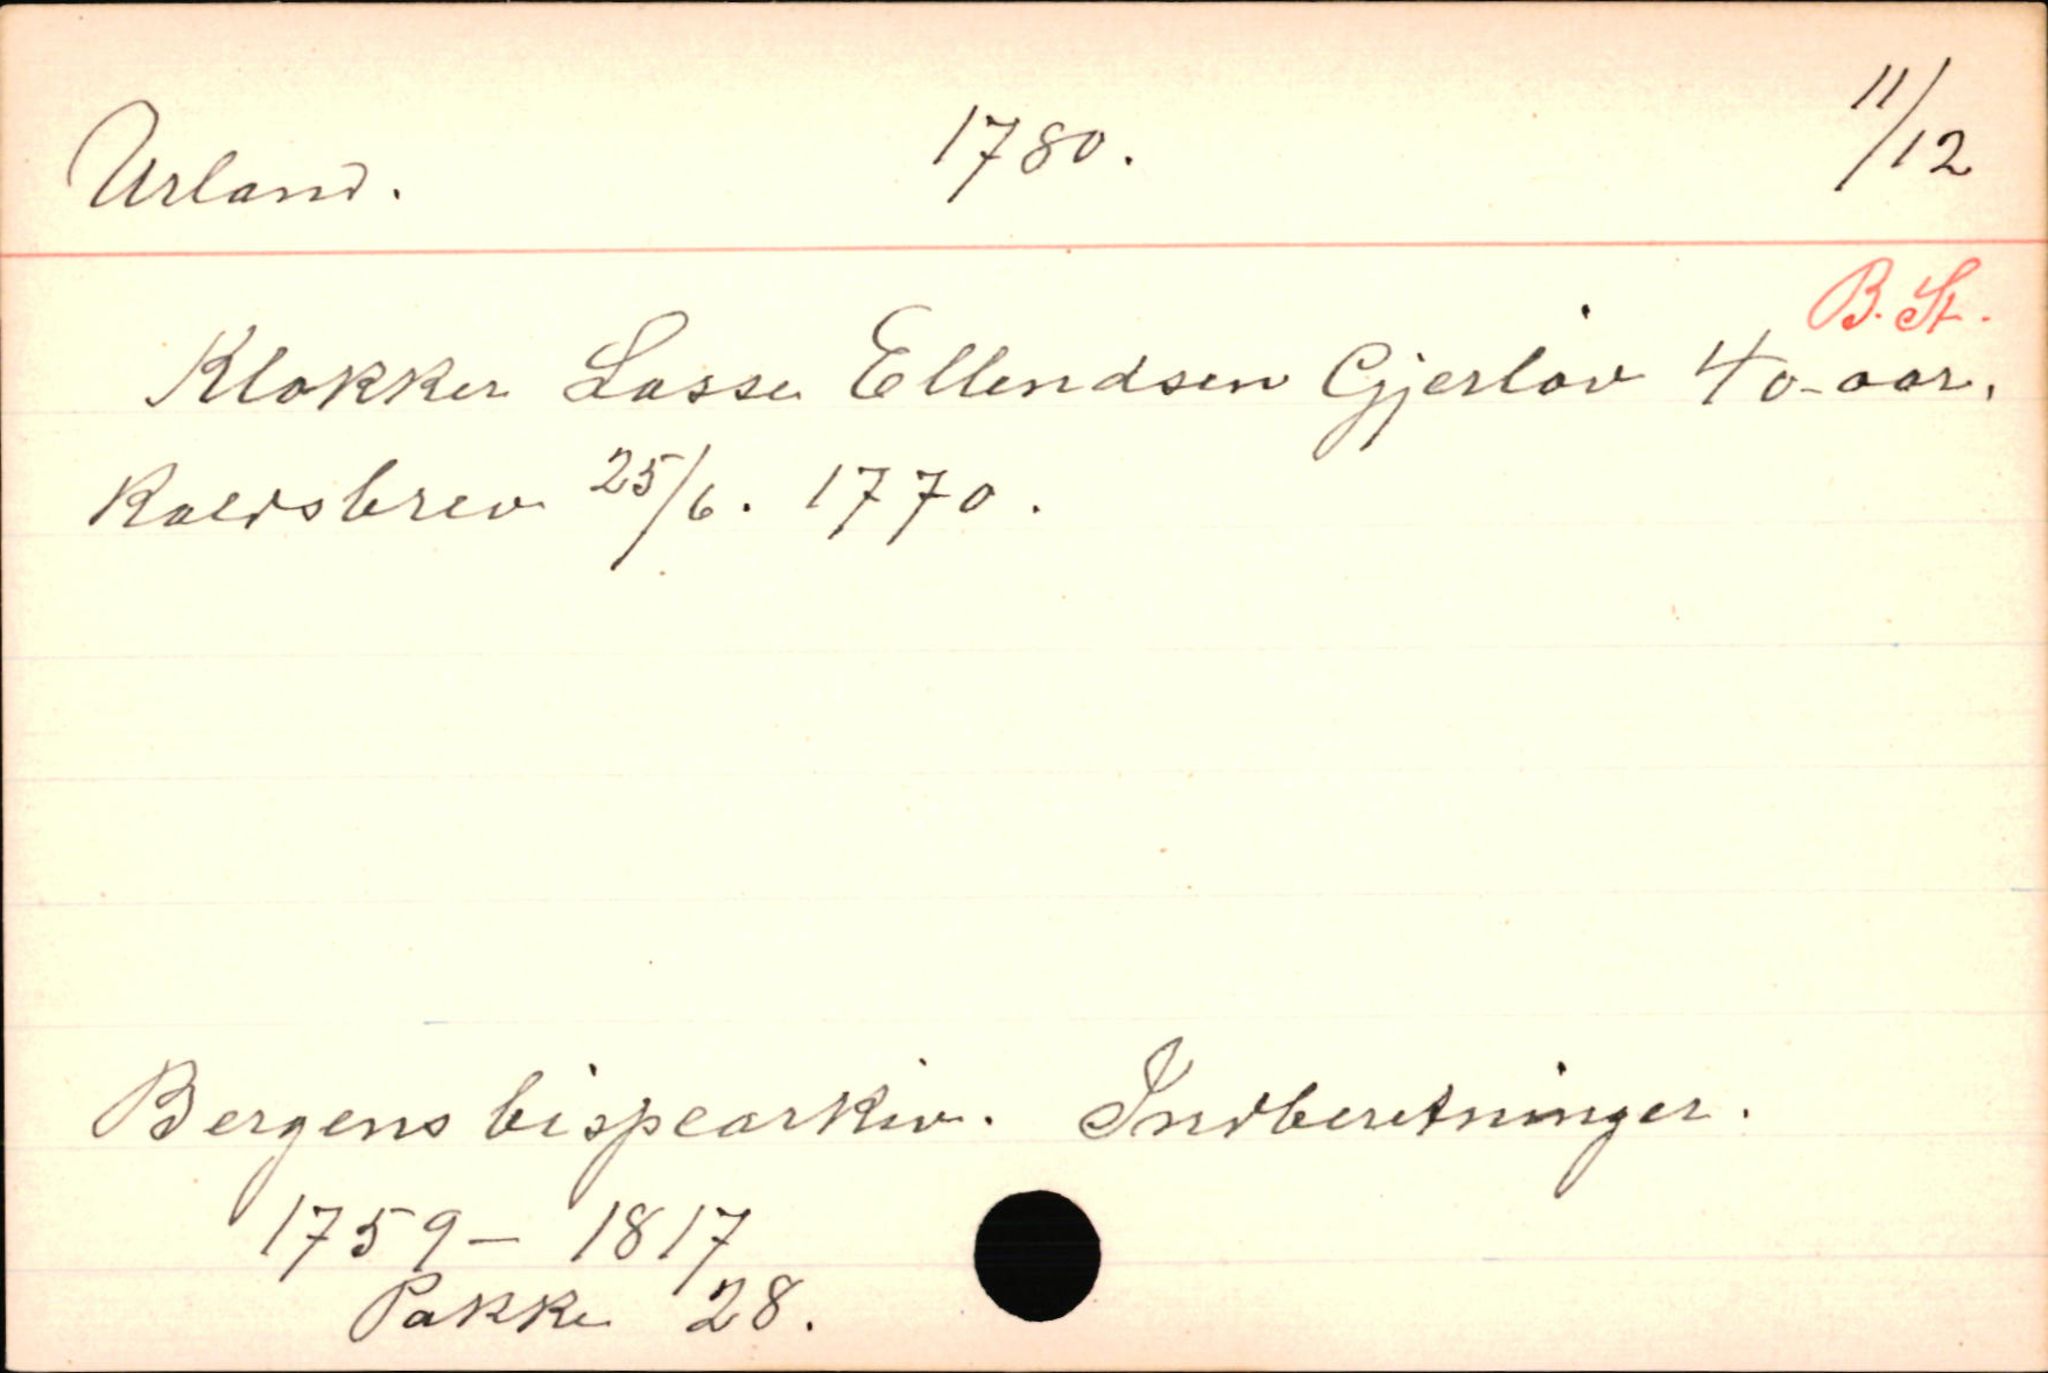 Urland. 1780. 11/12
B. St.
Klokker Lasse Ellendsen Gjerløv 40-aar.
Kaldsbrev 25/6. 1770.
Bergens bispearkiv. Indberetninger.
1759- 1817
Pakke 28.